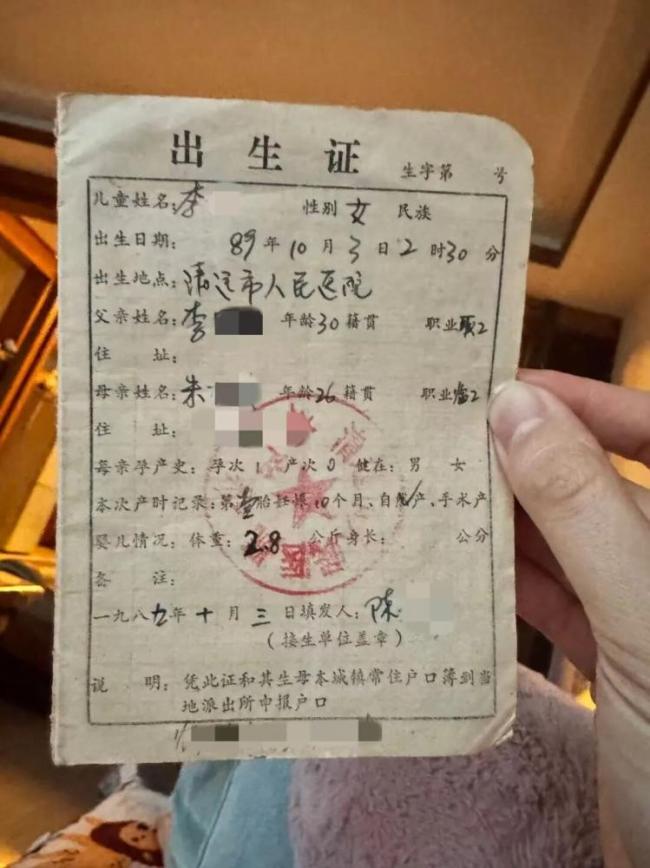 出生证
生字第 号
儿童姓名：李 性别 女 民族
出生日期： 89年10月3日2时30分
出生地点：清远市人民医院
父亲姓名：李 年龄30籍贯 职业
住 址：
母亲姓名：朱 年龄26籍贯 职业
住 址：
母亲孕产史：孕次1产次0健在：男 女
本次产时记录：第壹胎妊娠10个月、自然产、手术产
婴儿情况：体重：2.8 公斤身长： 公分
备 注：
一九八九年十月三日填发人：陈
（接生单位盖章）
说 明：凭此证和其生母本城镇常住户口簿到当
地派出所申报户口